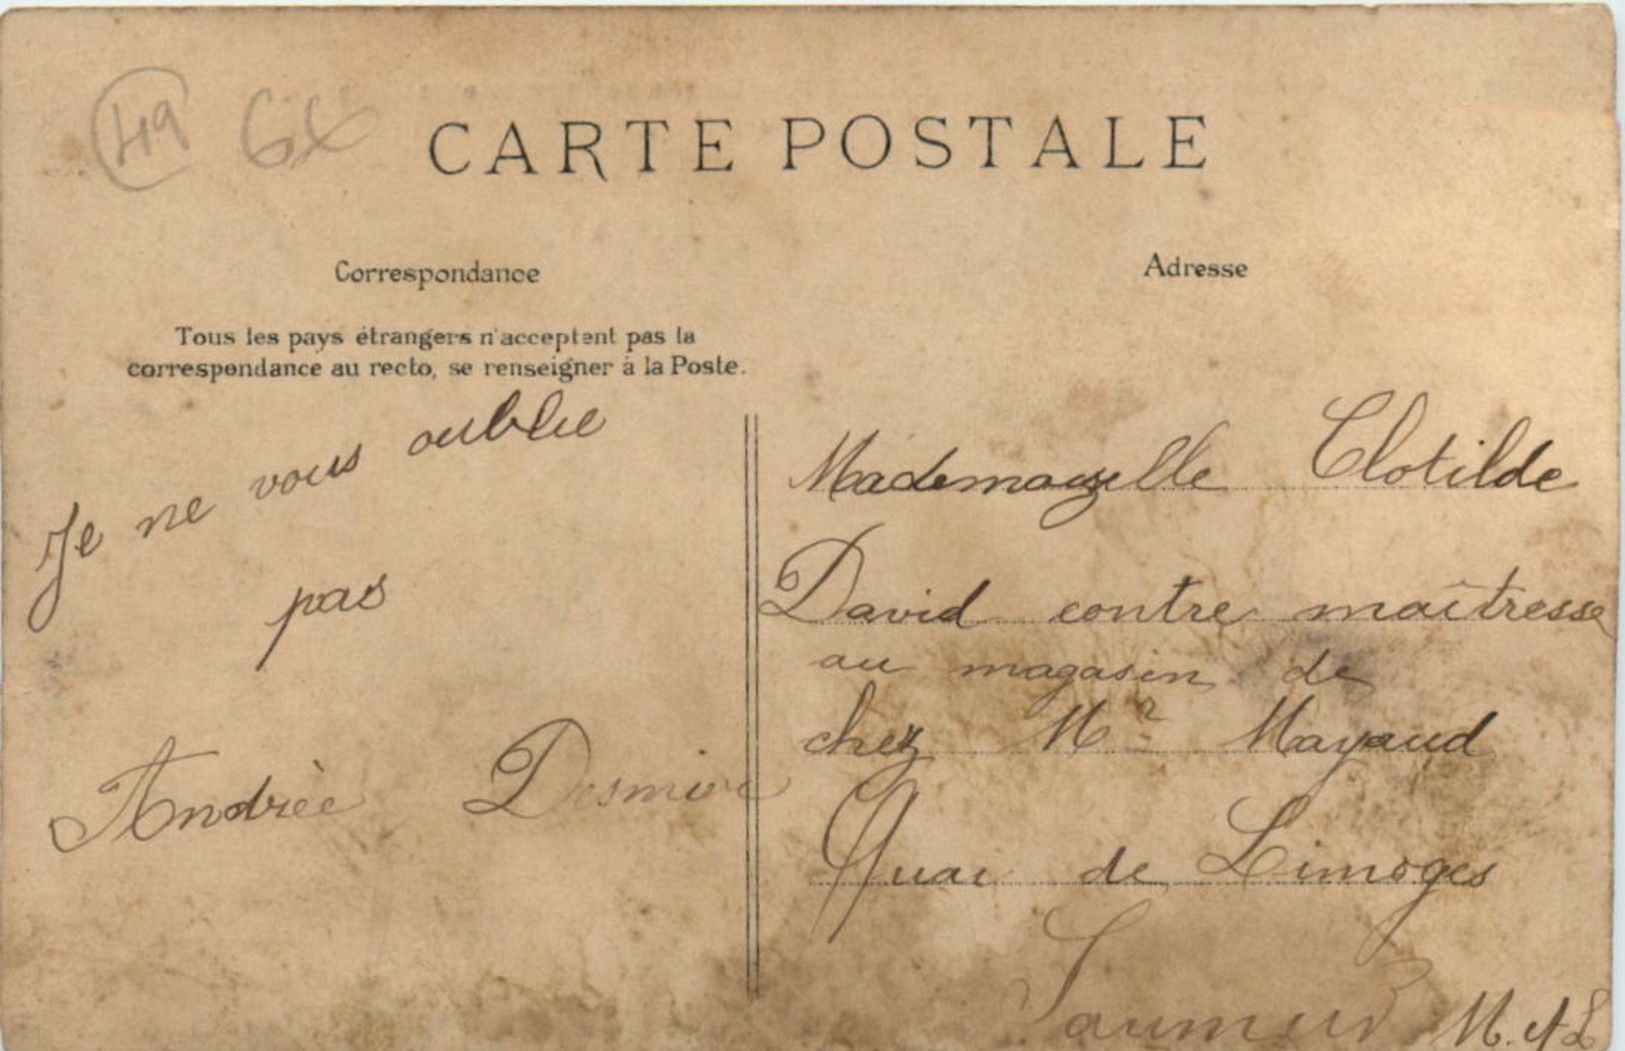 49
CARTE POSTALE
Correspondance
Tous les pays étrangers n'acceptent pas la
correspondance au recto, se renseigner à la Poste.
Je ne vous oublie
pas
Andrèe
Adresse
Mademoizelle Clotilde
David contre maîtresse
au magasin de
chez Mr Mayaud
Quai de Limoges
Saumur M. et L